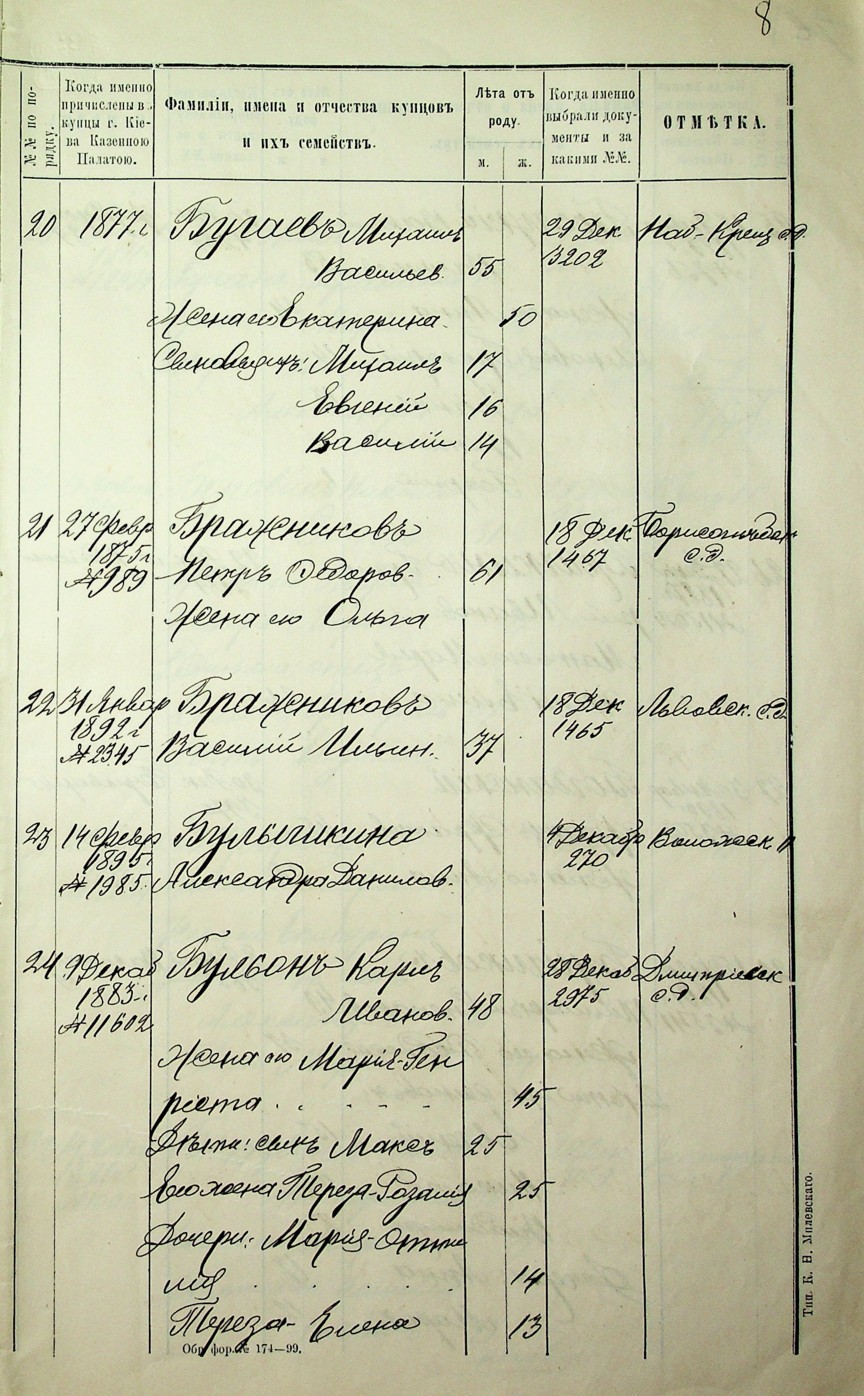 8
№№ по по-
рядку.
Когда именно
причислены в
купцы г. Кіе-
ва Казенною
Палатою.
Фамиліи, имена и отчества купцовъ
и ихъ семействъ.
Лѣта отъ
роду.
м. ж.
Когда именно
выбрали доку-
менты и за
какими №№.
ОТМѢТКА.
20 1877 г. Бугаевъ Михаилъ 29 Дек Наб-Крещ с.д.
Васильев. 55 3202
Жена его Екатерина 50
Сыновья ихъ: Михаилъ 17
Евгеній 16
Василій 14
21 27 февр Бражниковъ 18 Дек Борисоглѣб
1875 г. 1467 с.д.
№ 989 Петръ Ѳедоров. 61
Жена его Ольга
22 31 Январ Бражниковъ 18 Дек Львовск. с.д.
1892 г 1465
№ 2345 Василій Ильин. 37
23 14 февр Булышкина 4 Декабр Воложск
1895 г. 270
№ 1985 Александра Данилов.
24 9 Декаб Бульонъ Карлъ 28 Декаб Дмитріевск
1883 г. Иванов. 48 2975 с.д.
№ 11602
Жена его Марія-Ген
ріета 45
Дѣти: сынъ Максъ 25
Его жена Тереза-Розалія 25
Дочери: Марія-Отти
лія 14
Тереза-Елена 13
Обр. фор. № 174—99.
Тип. К. Н. Милевскаго.